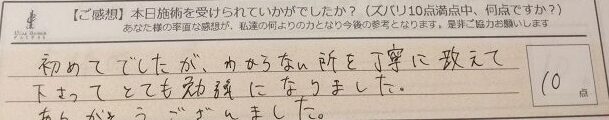 【ご感想】本日施術を受けられていかがでしたか？（ズバリ10点満点中、何点ですか？）
あなた様の率直な感想が、私達の何よりの力となり今後の参考となります。是非ご協力お願いします
初めてでしたが、わからない所を丁寧に教えて
下さってとても勉強になりました。
ありがとうございました。
10点